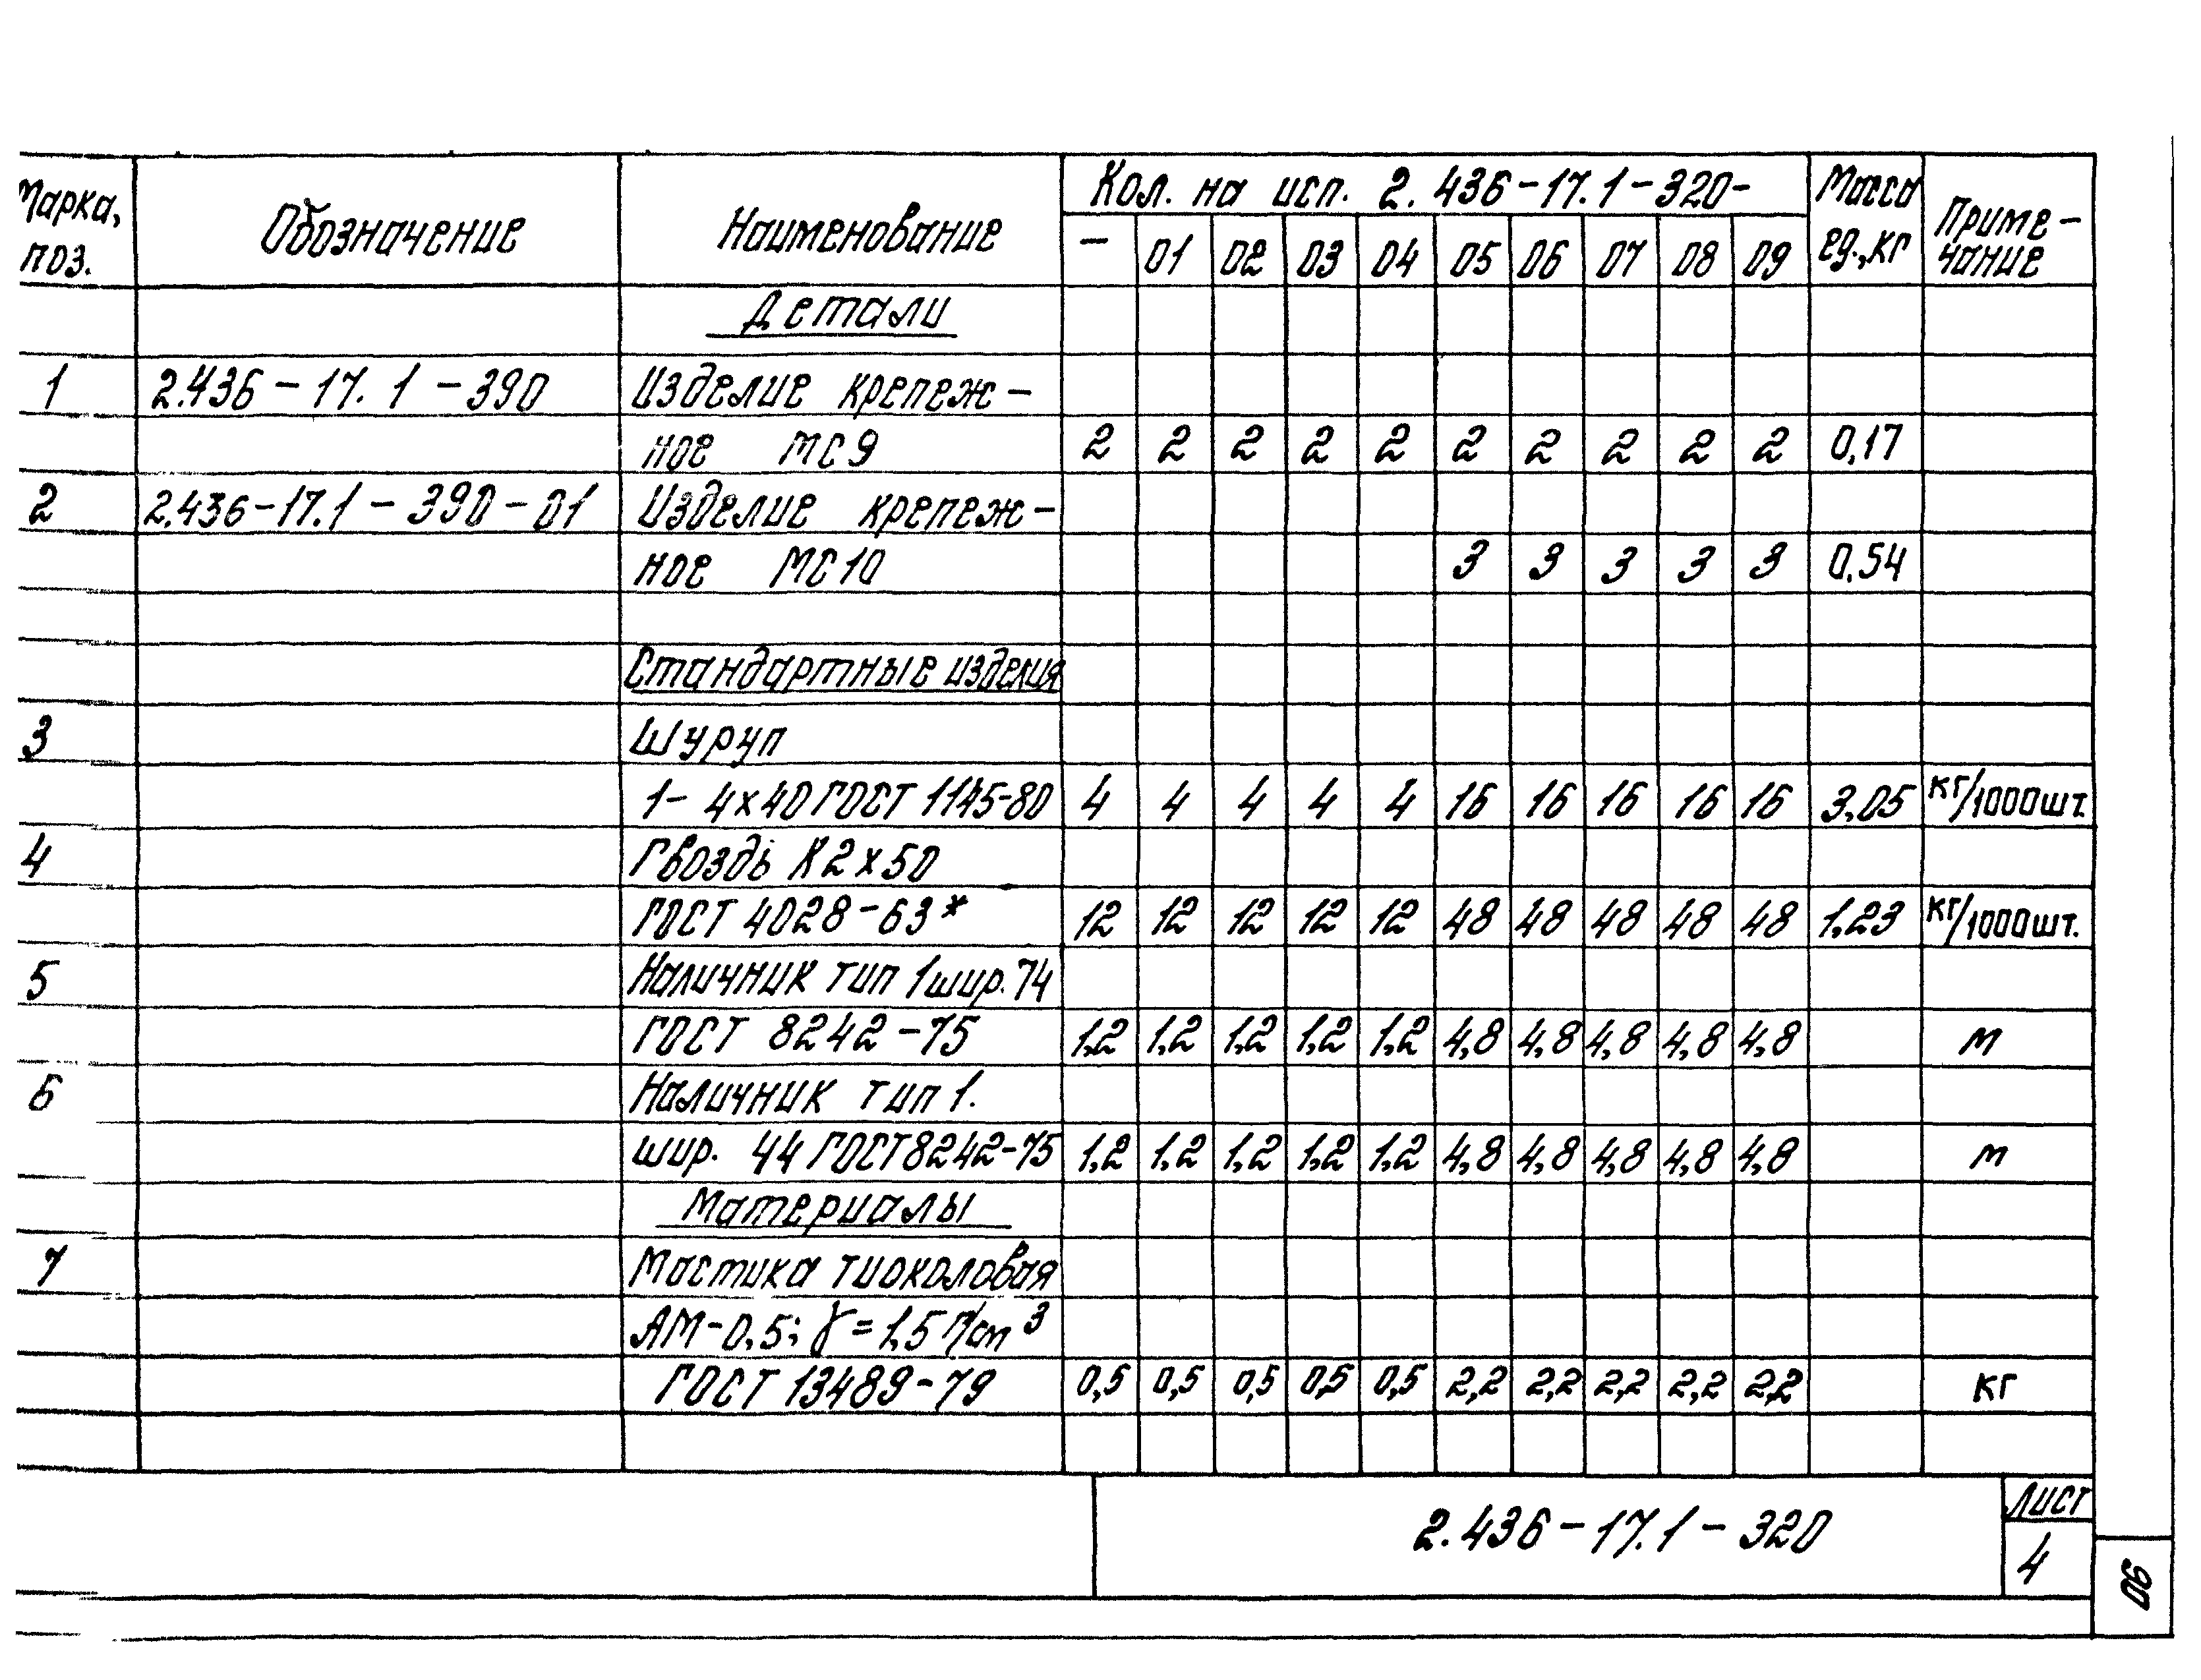 Марка, поз. Обозначение Наименование Кол. на исп. 2.436-17.1-320- Масса ед.,кг Приме-чание
— 01 02 03 04 05 06 07 08 09
Детали
1 2.436-17.1-390 Изделие крепеж-
ное МС9 2 2 2 2 2 2 2 2 2 2 0,17
2 2.436-17.1-390-01 Изделие крепеж-
ное МС10 3 3 3 3 3 0,54
Стандартные изделия
3 Шуруп
1-4х40 ГОСТ 1145-80 4 4 4 4 4 16 16 16 16 16 3,05 кг/1000шт.
4 Гвоздь К2х50
ГОСТ 4028-63* 12 12 12 12 12 48 48 48 48 48 1,23 кг/1000шт.
5 Наличник тип 1 шир. 74
ГОСТ 8242-75 1,2 1,2 1,2 1,2 1,2 4,8 4,8 4,8 4,8 4,8 м
6 Наличник тип 1.
шир. 44 ГОСТ 8242-75 1,2 1,2 1,2 1,2 1,2 4,8 4,8 4,8 4,8 4,8 м
Материалы
7 Мастика тиоколовая
АМ-0,5; γ=1,5 г/см³
ГОСТ 13489-79 0,5 0,5 0,5 0,5 0,5 2,2 2,2 2,2 2,2 2,2 кг
2.436-17.1-320
Лист
4
90